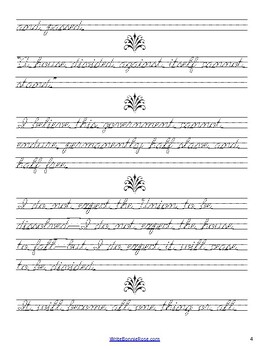 and passed.
"A house divided against itself cannot
stand."
I believe this government cannot
endure, permanently half slave and
half free.
I do not expect the Union to be
dissolved—I do not expect the house
to fall—but I do expect it will cease
to be divided.
It will become all one thing or all
WriteBonnieRose.com
4